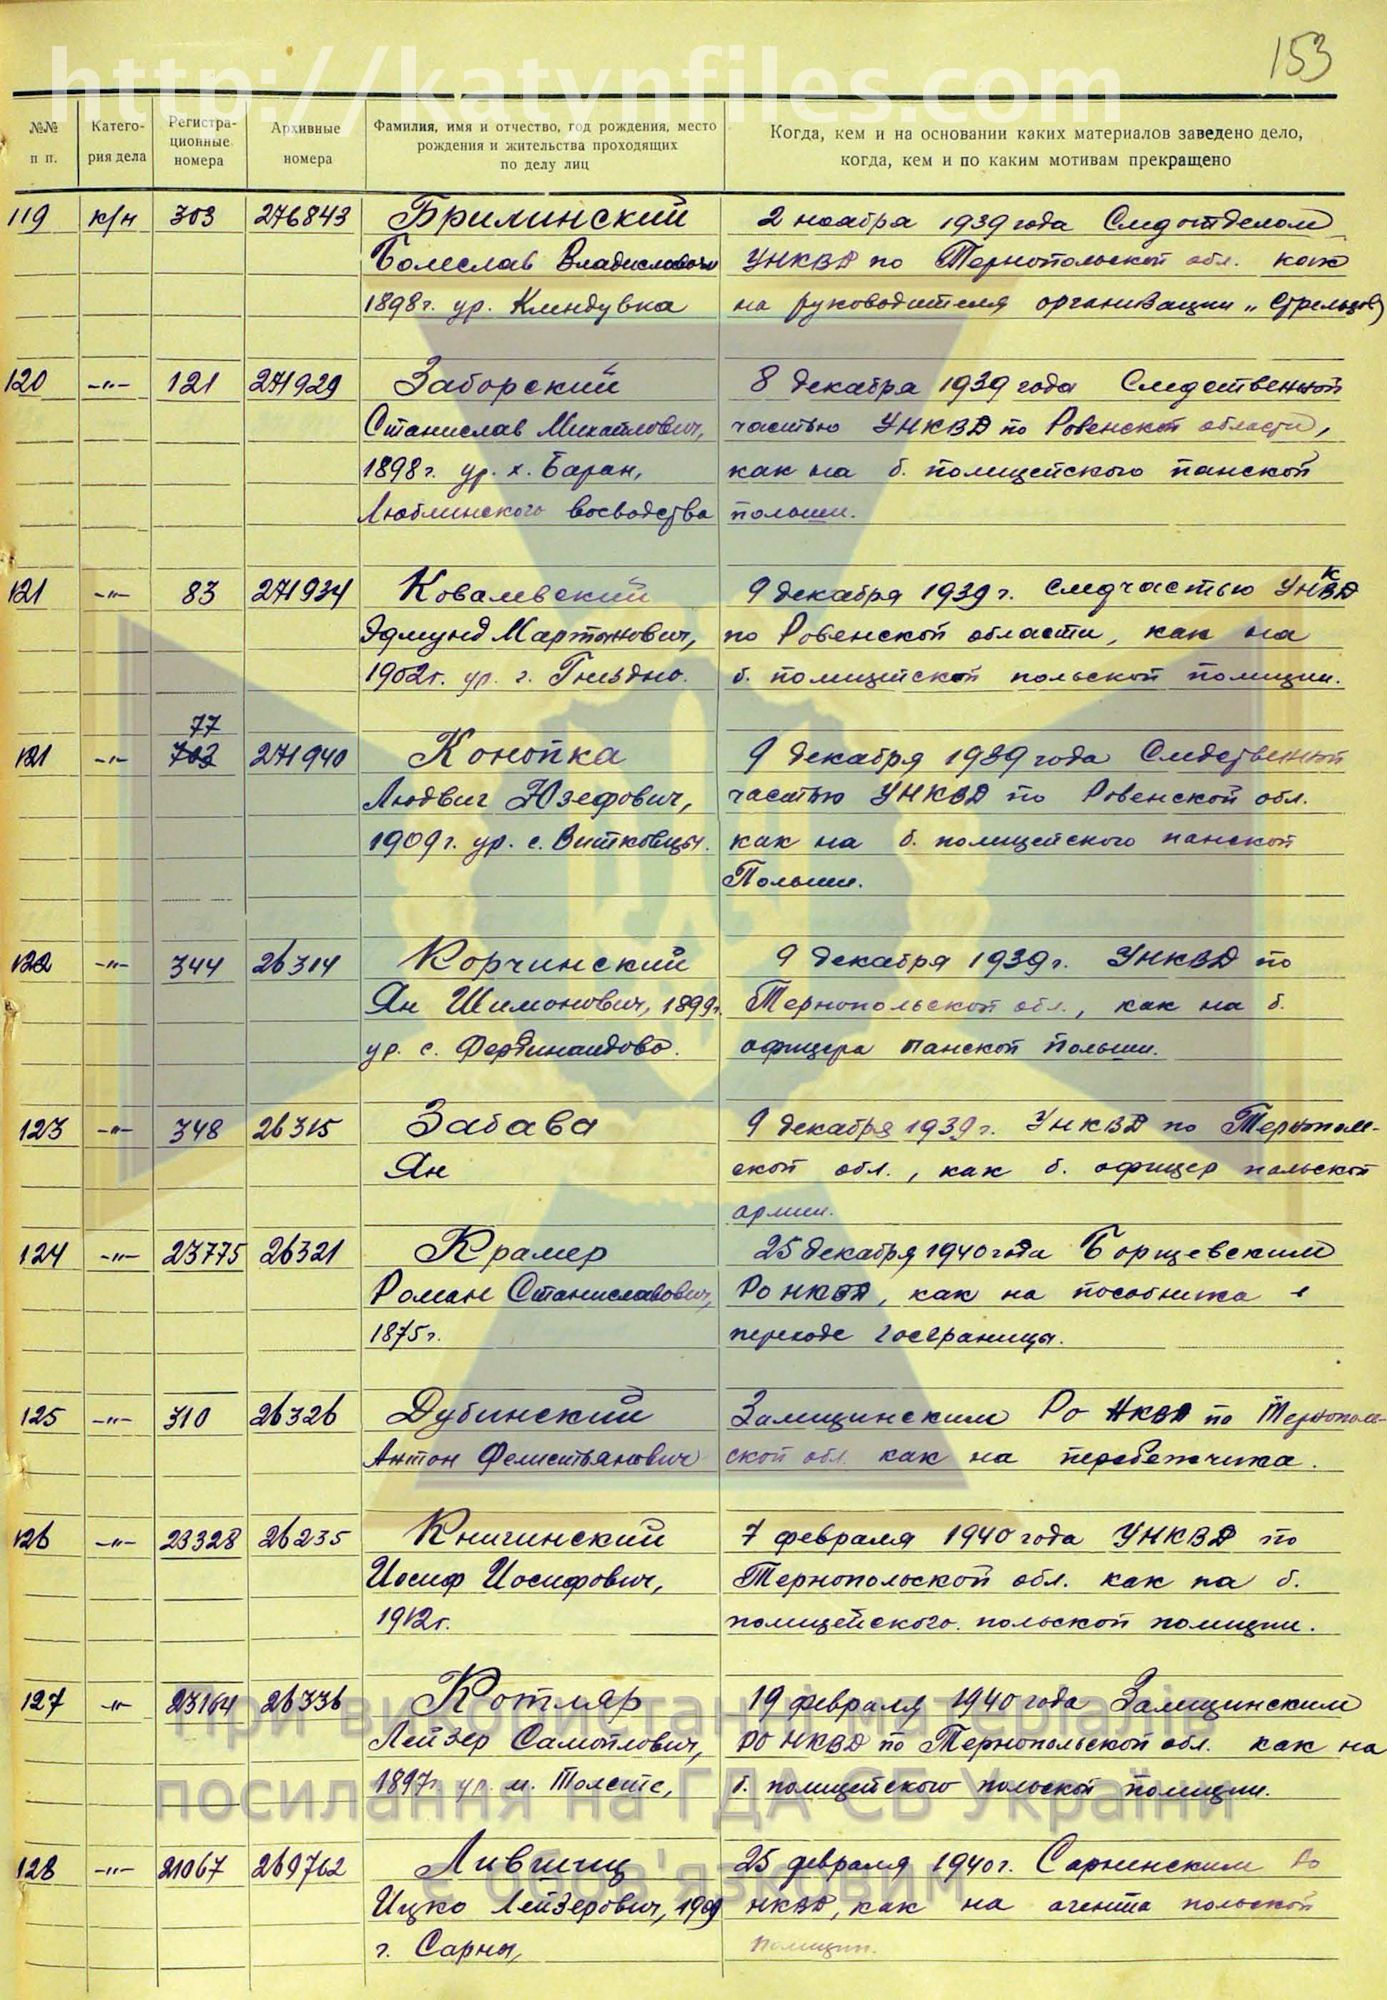 http://katynfiles.com
153
№№ п п.
Катего-
рия дела
Регистра-
ционные
номера
Архивные
номера
Фамилия, имя и отчество, год рождения, место
рождения и жительства проходящих
по делу лиц
Когда, кем и на основании каких материалов заведено дело,
когда, кем и по каким мотивам прекращено
119 к/н 303 276843 Брилинский 2 ноября 1939 года Следотделом
Болеслав Владиславович УНКВД по Тернопольской обл. как
1898 г. ур. Клиндувка на руководителя организации „Стрельцов"
120 –"– 121 271929 Заборский 8 декабря 1939 года Следственной
Станислав Михайлович, частью УНКВД по Ровенской области,
1898 г. ур. х. Баран, как на б. полицейского панской
Люблинского воеводства польши.
121 –"– 83 271934 Ковалевский 9 декабря 1939 г. следчастью УНКВД
Эдмунд Мартынович, по Ровенской области, как на
1902 г. ур. г. Гнездно. б. полицейской польской полиции.
77
121 –"– 703 271940 Конопка 9 декабря 1939 года Следственной
Людвиг Юзефович, частью УНКВД по Ровенской обл.
1909 г. ур. с. Витковцы. как на б. полицейского панской
Польши.
122 –"– 344 26314 Корчинский 9 декабря 1939 г. УНКВД по
Ян Шимонович, 1899 г. Тернопольской обл., как на б.
ур. с. Фердинандово. офицера панской Польши.
123 –"– 348 26315 Забава 9 декабря 1939 г. УНКВД по Тернополь-
Ян ской обл., как б. офицер польской
армии.
124 –"– 23775 26321 Крамер 25 декабря 1940 года Борщевским
Роман Станиславович, Ро НКВД, как на пособника в
1875 г. переходе госграницы.
125 –"– 310 26326 Дубинский Залищинским Ро НКВД по Тернополь-
Антон Фелистьянович ской обл. как на перебежчика.
126 –"– 23328 26235 Кничинский 7 февраля 1940 года УНКВД по
Иосиф Иосифович, Тернопольской обл. как на б.
1912 г. полицейского польской полиции.
127 –"– 23164 26336 Котляр 19 февраля 1940 года Залищинским
Лейзер Самойлович, РО НКВД по Тернопольской обл. как на
1897 г. ур. м. Толсте, б. полицейского польской полиции.
128 –"– 21067 269762 Лившиц 25 февраля 1940 г. Сарненским Ро
Ицко Лейзерович, 1909 НКВД, как на агента польской
г. Сарны, полиции.
При використанні матеріалів
посилання на ГДА СБ України
є обов'язковим